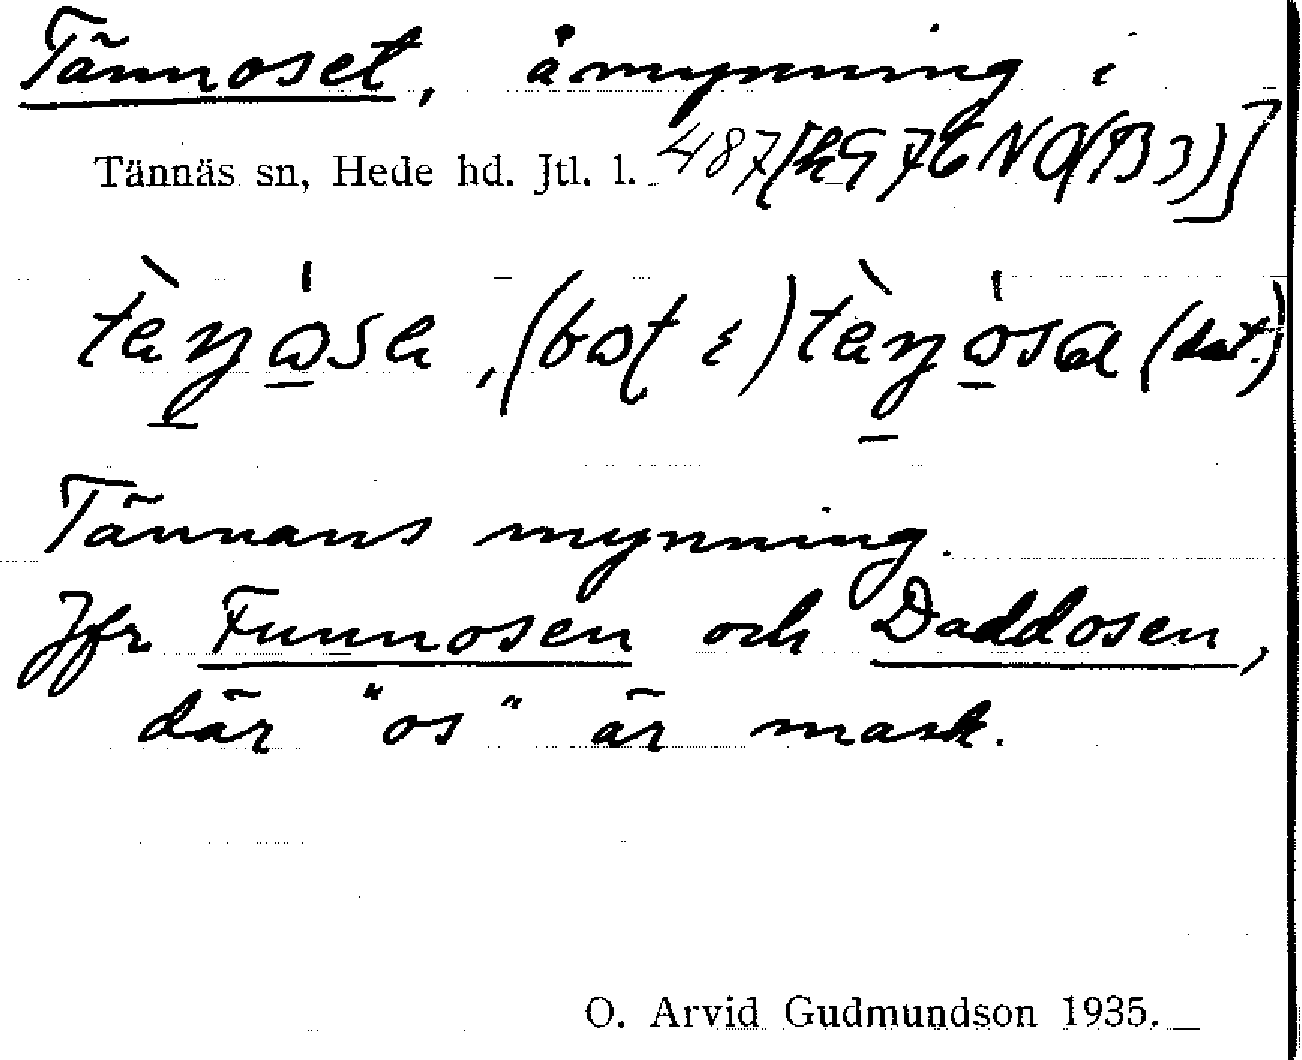 Tännoset, åmynning i
Tännäs sn, Hede hd. Jtl. l. 487 [kG 76 NO (B3)]
Tännans mynning.
Jfr Funnosen och Daddosen,
där "os" är mask.
O. Arvid Gudmundson 1935.